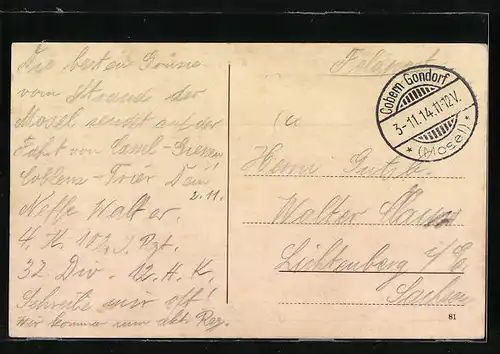 Die besten Grüße
vom Strande der
Mosel sendet auf der
Fahrt von
Coblenz - Trier Dein
2.11.
Neffe Walter.
4. K. Rgt.
32. Div. 12. A. K.
Schreibe mir oft!
Wir kommen zum
Feldpost
Cobern-Gondorf
3-11.14.11-12V.
* (Mosel) *
Herrn Gutsb.
Walter
Lichtenberg i/E
Sachsen
81